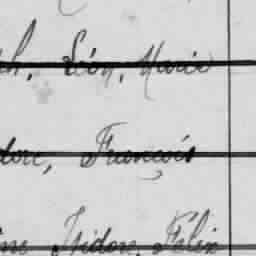 Léon, Marie
dore, François
Isidore, Félix